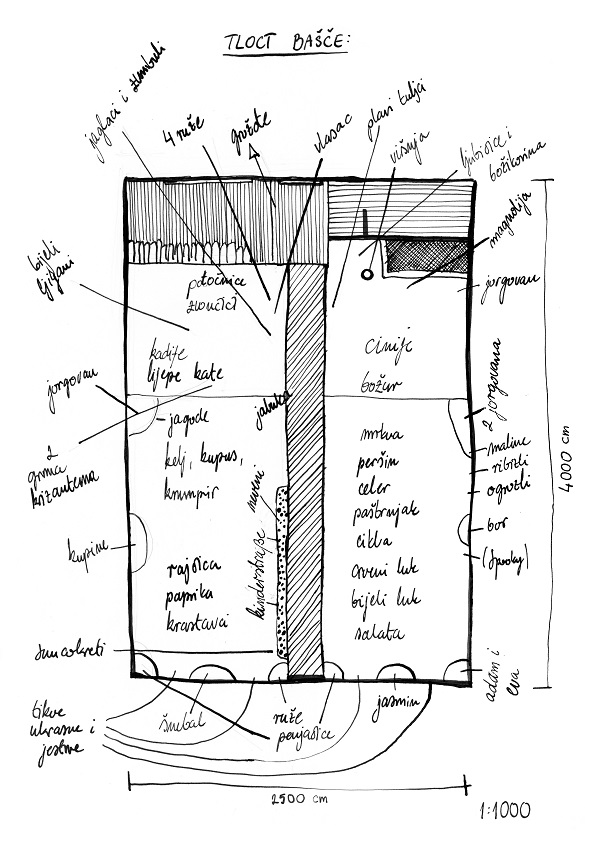 TLOCT BAŠČE:
jaglaci i zumbuli
4 ruže
grožđe
vlasac
plavi tulja
višnja
ljubičice i
božikovina
bijeli
ljiljani
magnolija
jorgovan
potočnice
zvončići
kadife
lijepe kate
cinije
božur
jorgovan
2 jorgovana
jagode
jabuka
kelj, kupus,
krumpir
2
grma
krizantema
mrkva
peršin
celer
paštrnjak
cikla
crveni luk
bijeli luk
salata
maline
ribizli
ogrozli
bor
(spooky)
4000 cm
neveni
kinderštrasse
kupine
rajčica
paprika
krastavci
suncokreti
adam i
eva
tikve
ukrasne i
jestive
šimbal
ruže
penjačice
jasmin
2500 cm
1:1000